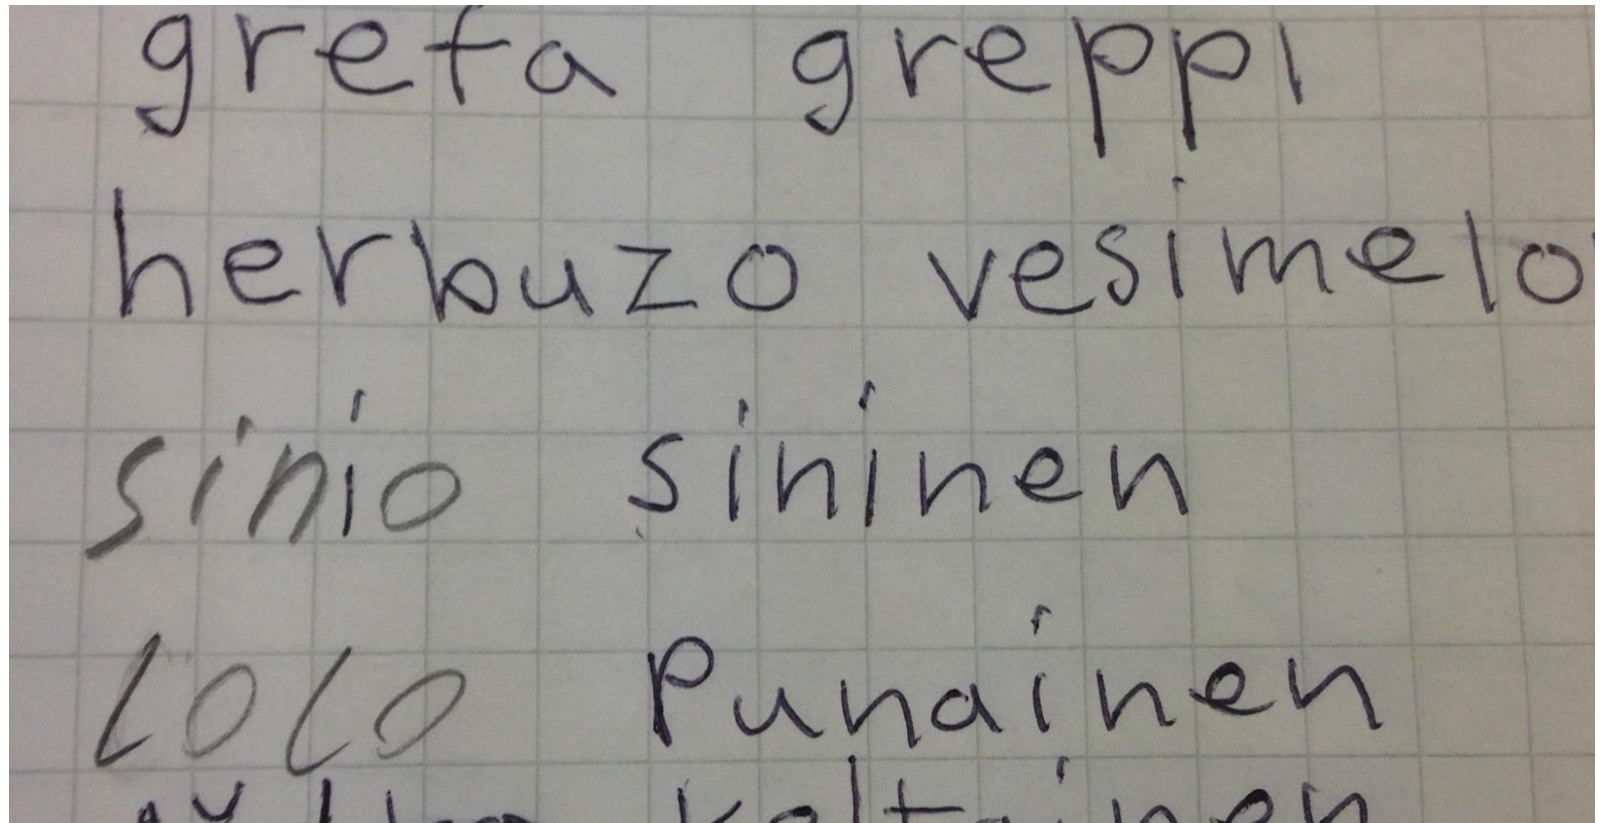 grefa greppi
herbuzo vesimelo
sinio sininen
lolo Punainen
keltainen